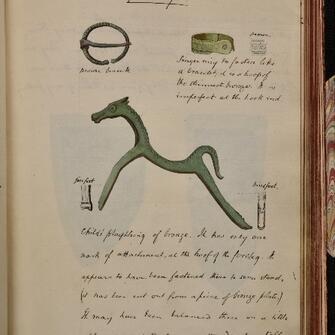 bronze brooch
Finger ring to fasten like
a bracelet, it is a hoop of
the thinnest bronze. It is
imperfect at the hook end
forefoot
hindfoot.
Child's plaything of bronze. It has only one
mark of attachment, at the hoof of the foreleg. It
appears to have been fastened there to some stand,
(it was been cut out from a piece of bronze plate.)
It may have been balanced there on a little